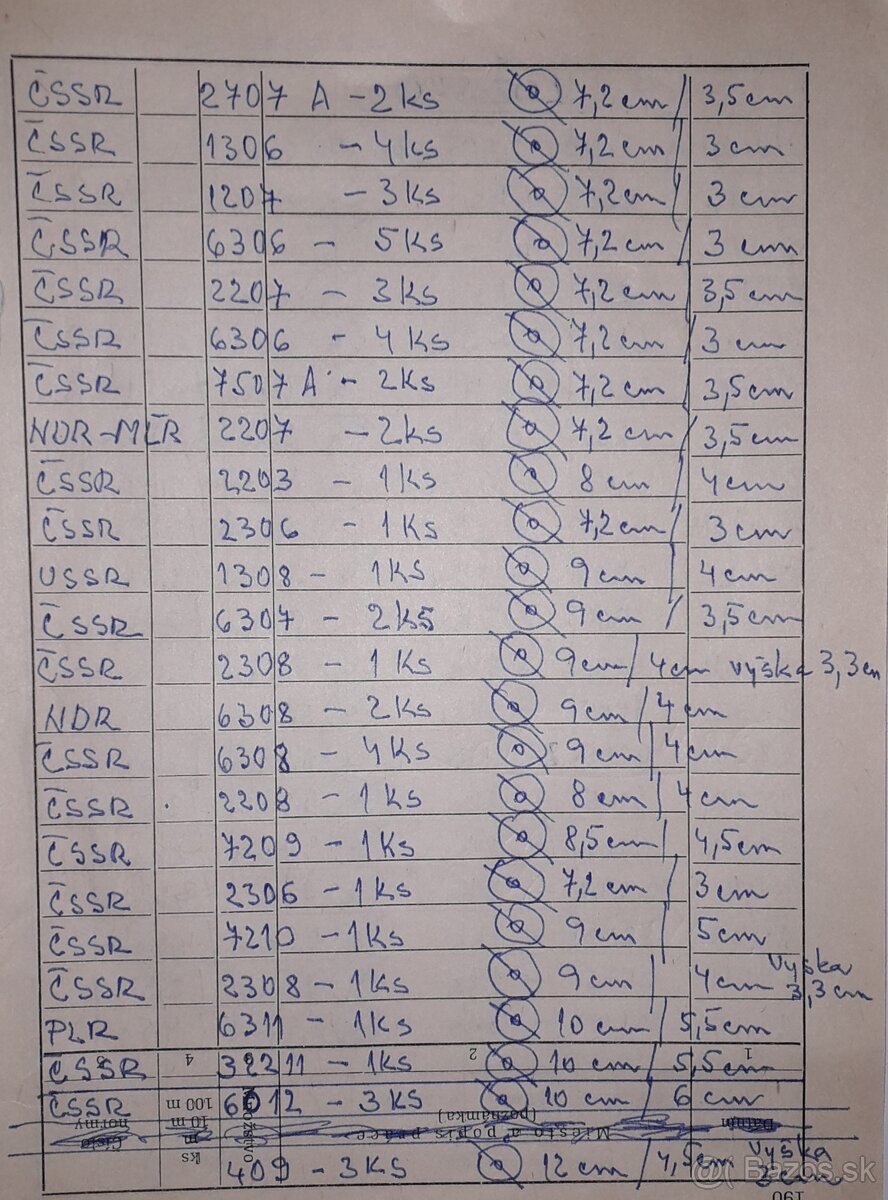 ČSSR 2707 A - 2ks ⌀ 7,2cm / 3,5cm
ČSSR 1306 - 4ks ⌀ 7,2cm / 3cm
ČSSR 1207 - 3ks ⌀ 7,2cm / 3cm
ČSSR 6306 - 5ks ⌀ 7,2cm / 3cm
ČSSR 2207 - 3ks ⌀ 7,2cm / 3,5cm
ČSSR 6306 - 4ks ⌀ 7,2cm / 3cm
ČSSR 7507 A - 2ks ⌀ 7,2cm / 3,5cm
NDR-MLR 2207 - 2ks ⌀ 7,2cm / 3,5cm
ČSSR 2203 - 1ks ⌀ 8cm / 4cm
ČSSR 2306 - 1ks ⌀ 7,2cm / 3cm
USSR 1308 - 1ks ⌀ 9cm / 4cm
ČSSR 6307 - 2ks ⌀ 9cm / 3,5cm
ČSSR 2308 - 1ks ⌀ 9cm / 4cm výška 3,3cm
NDR 6308 - 2ks ⌀ 9cm / 4cm
ČSSR 6308 - 4ks ⌀ 9cm / 4cm
ČSSR 2208 - 1ks ⌀ 8cm / 4cm
ČSSR 7209 - 1ks ⌀ 8,5cm / 4,5cm
ČSSR 2306 - 1ks ⌀ 7,2cm / 3cm
ČSSR 7210 - 1ks ⌀ 9cm / 5cm
ČSSR 2308 - 1ks ⌀ 9cm / 4cm výška 3,3cm
PLR 6311 - 1ks ⌀ 10cm / 5,5cm
ČSSR 32211 - 1ks ⌀ 10cm / 5,5cm
4 2 1
ČSSR 6012 - 3ks ⌀ 10cm / 6cm
Číslo normy ks m 10 m 100 m Množstvo Miesto a popis práce (poznámka) Dátum
409 - 3ks ⌀ 12cm / 4,5cm výška 3cm
190
Bazos.sk